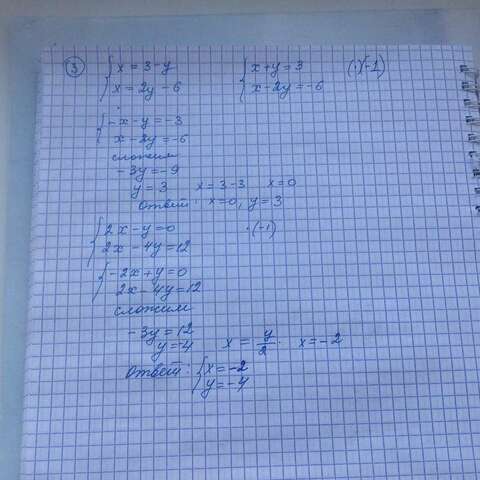 ③ { x = 3 - y { x + y = 3 (·)(-1)
x = 2y - 6 x - 2y = -6
{ -x - y = -3
x - 2y = -6
сложим
-3y = -9
y = 3 x = 3 - 3 x = 0
Ответ: x = 0, y = 3
{ 2x - y = 0 ·(-1)
2x - 4y = 12
{ -2x + y = 0
2x - 4y = 12
сложим
-3y = 12
y = -4 x = y/2 · x = -2
Ответ: { x = -2
y = -4